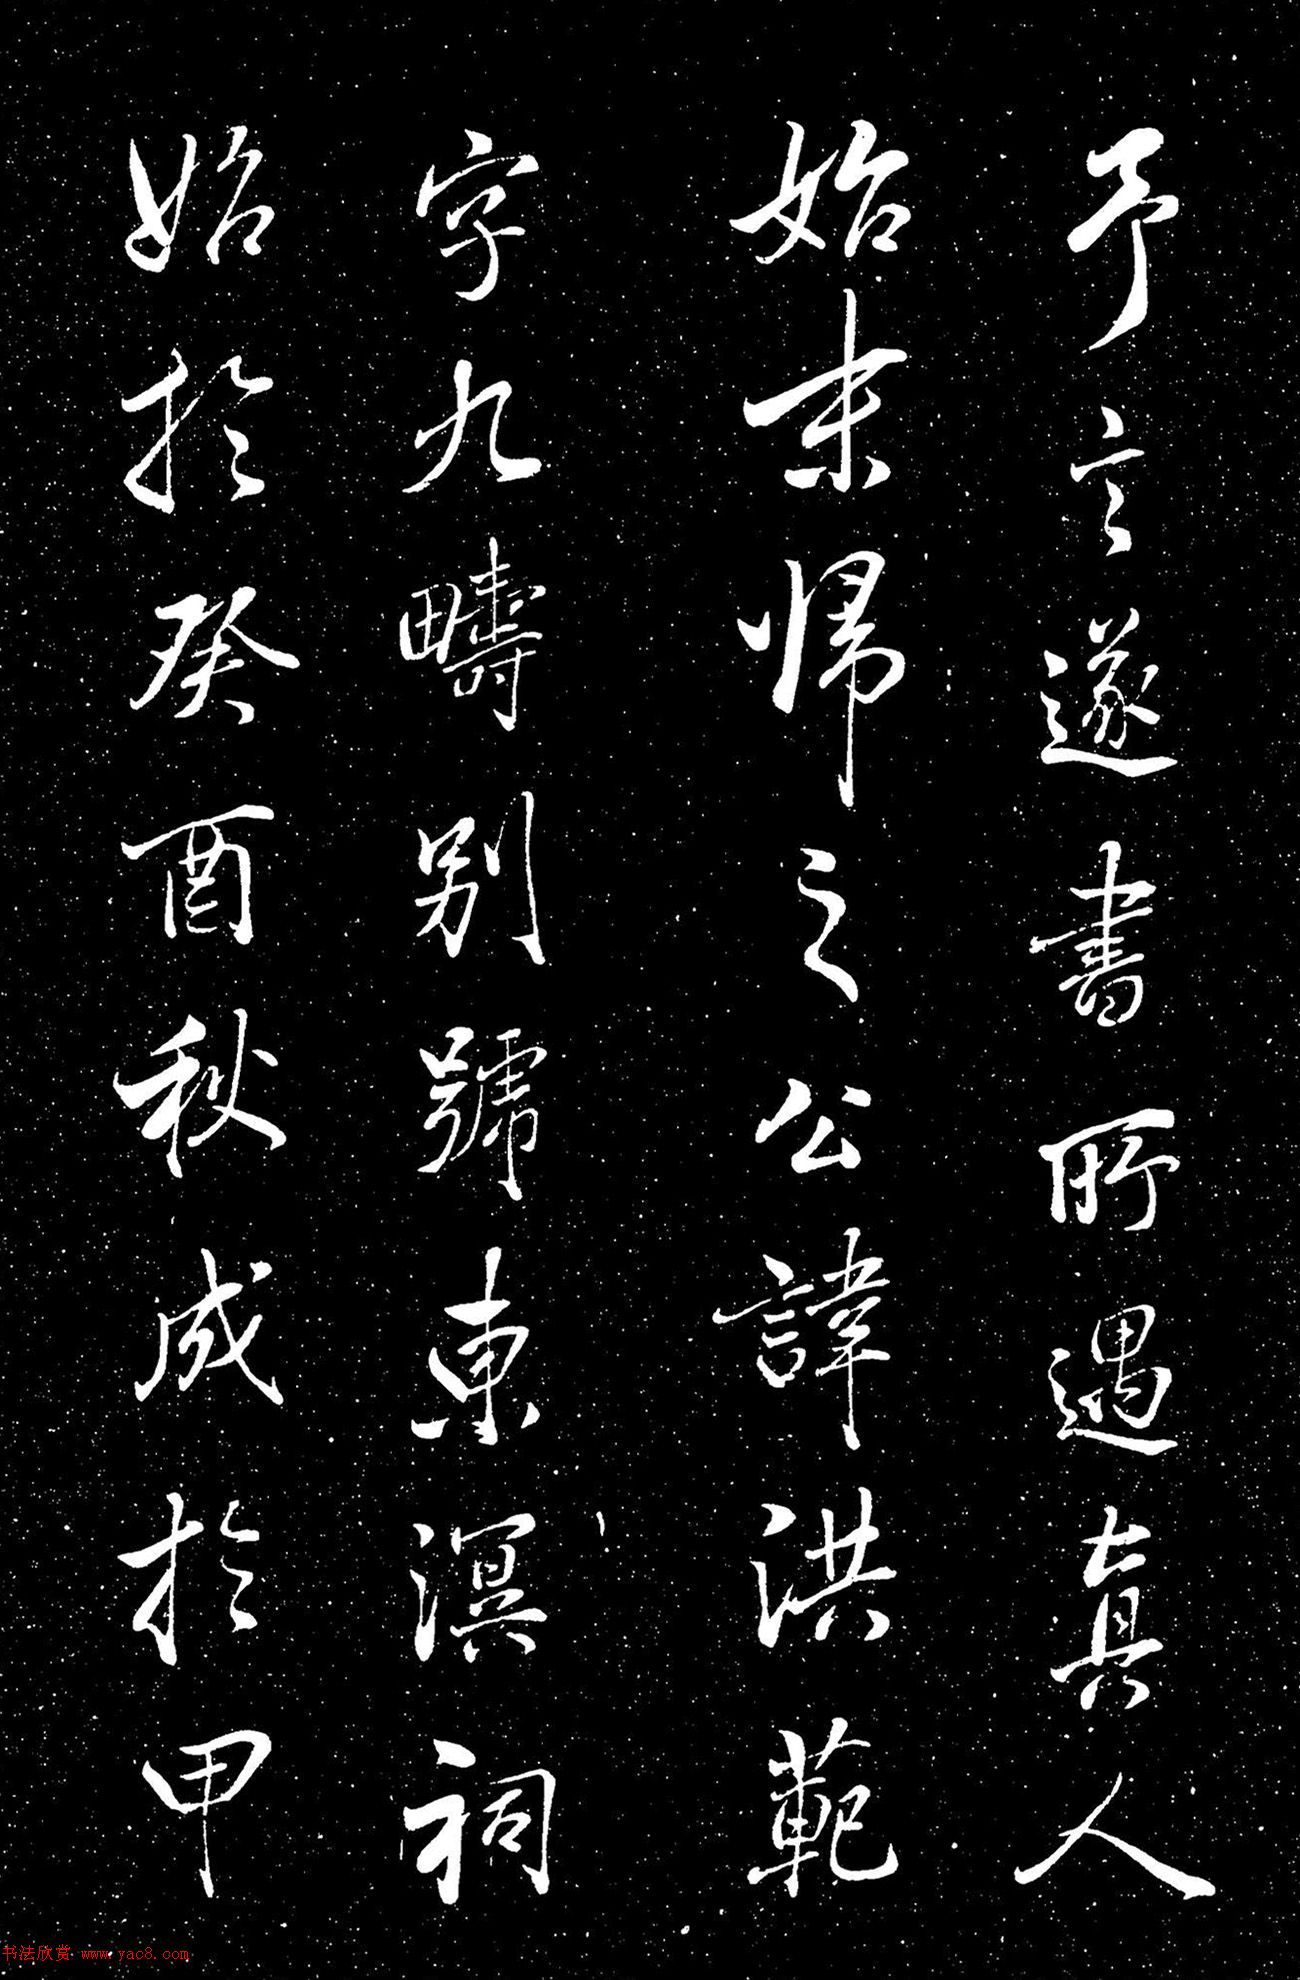 予言遂書所遇真人
始末歸之公諱洪範
字九疇別號東溟祠
始於癸酉秋成於甲
书法欣赏 www.yac8.com